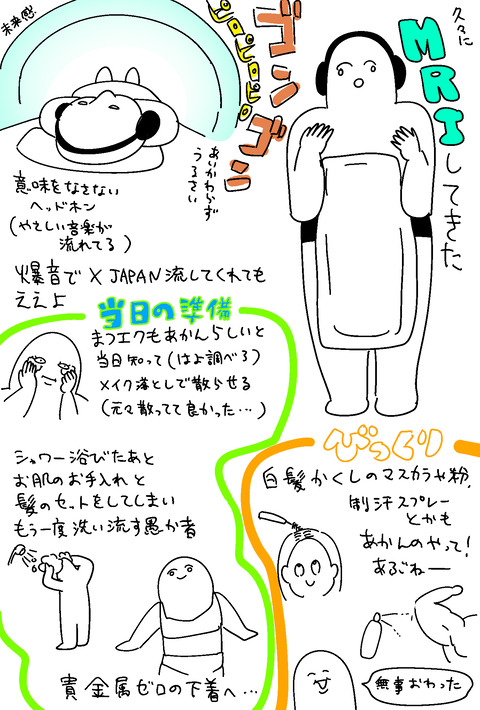 久々に
MRI
してきた
ゴンゴン
ピロピロピロ
あいかわらず
うるさい
未来感
意味をなさない
ヘッドホン
(やさしい音楽が
流れてる)
爆音でX JAPAN流してくれても
ええよ
当日の準備
まつエクもあかんらしいと
当日知って(はよ調べろ)
メイク落としで散らせる
(元々散ってて良かった…)
シャワー浴びたあと
お肌のお手入れと
髪のセットをしてしまい
もう一度洗い流す愚か者
貴金属ゼロの下着へ…
びっくり
白髪かくしのマスカラや粉、
制汗スプレー
とかも
あかんのやって!
あるごねー
無事おわった